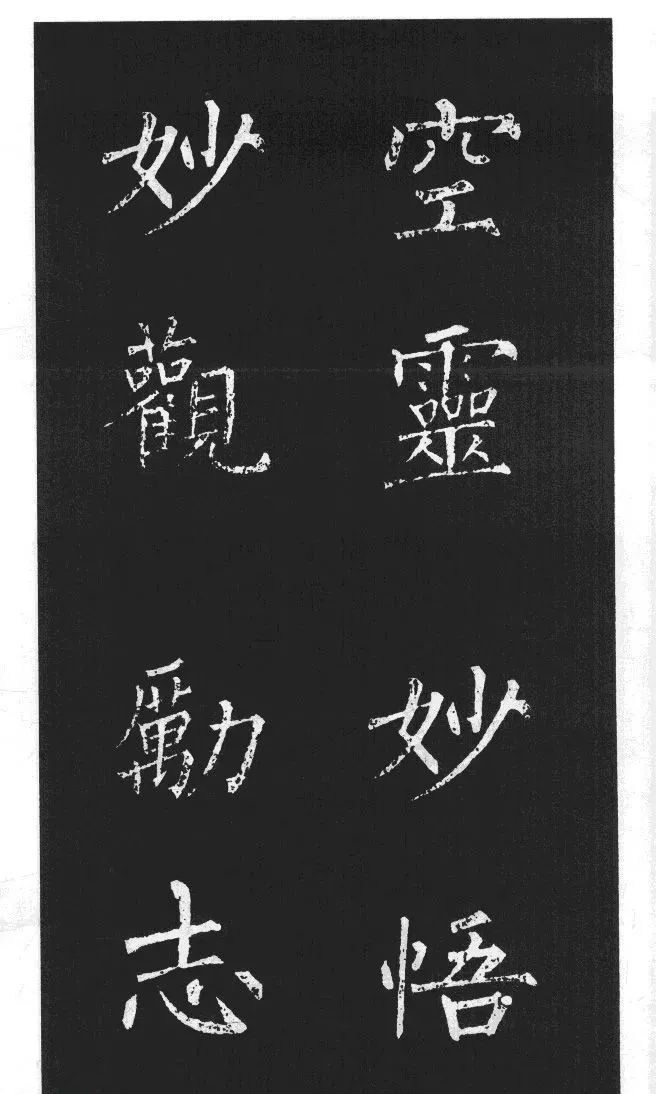 空靈妙悟
妙觀勵志